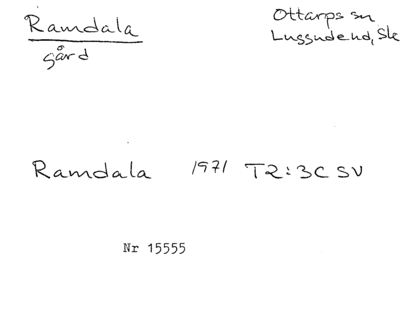 Ramdala
gård
Ottarps sn
Luggude hd, Sk
Ramdala 1971 T2:3C SV
Nr 15555